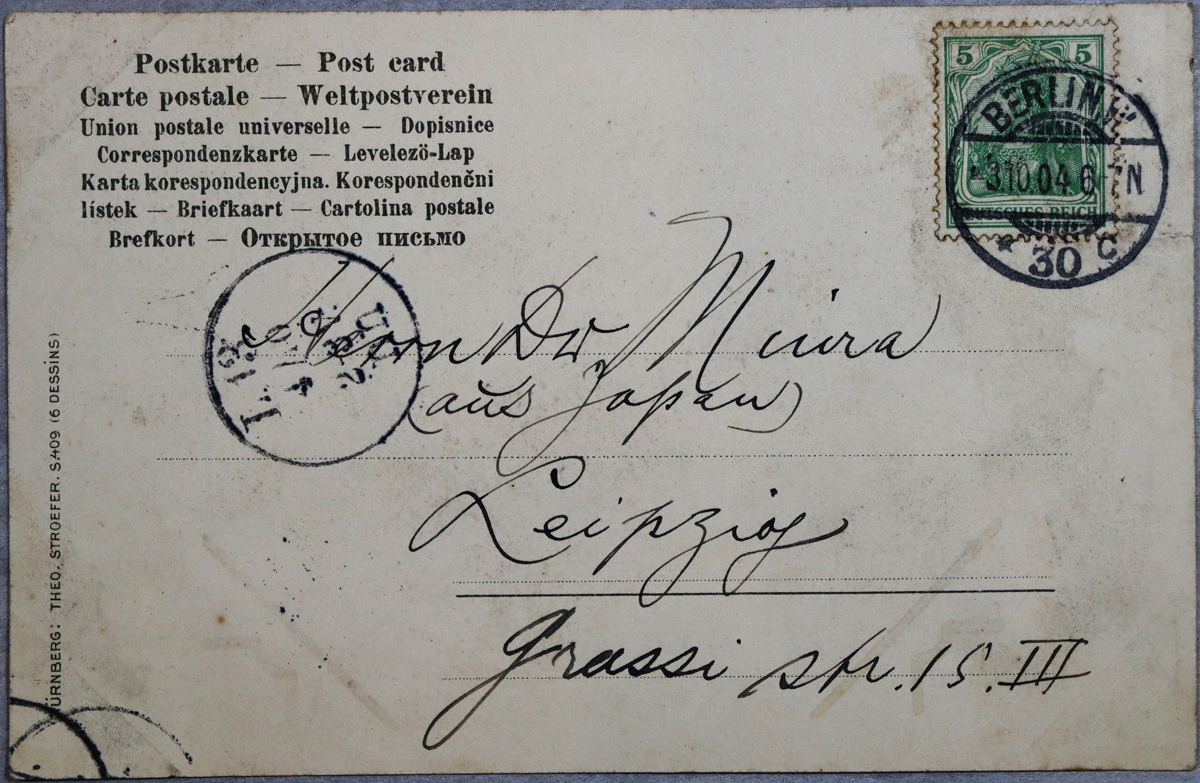 Postkarte — Post card
Carte postale — Weltpostverein
Union postale universelle — Dopisnice
Correspondenzkarte — Levelezö-Lap
Karta korespondencyjna. Korespondenční
lístek — Briefkaart — Cartolina postale
Brefkort — Открытое письмо
5 5
DEUTSCHES REICH
BERLIN W
3.10.04.6-7N
30 c
Herrn Dr Miura
(aus Japan)
Leipzig
Grassi str. 15. III
ÜRNBERG: THEO. STROEFER. S.409 (6 DESSINS)